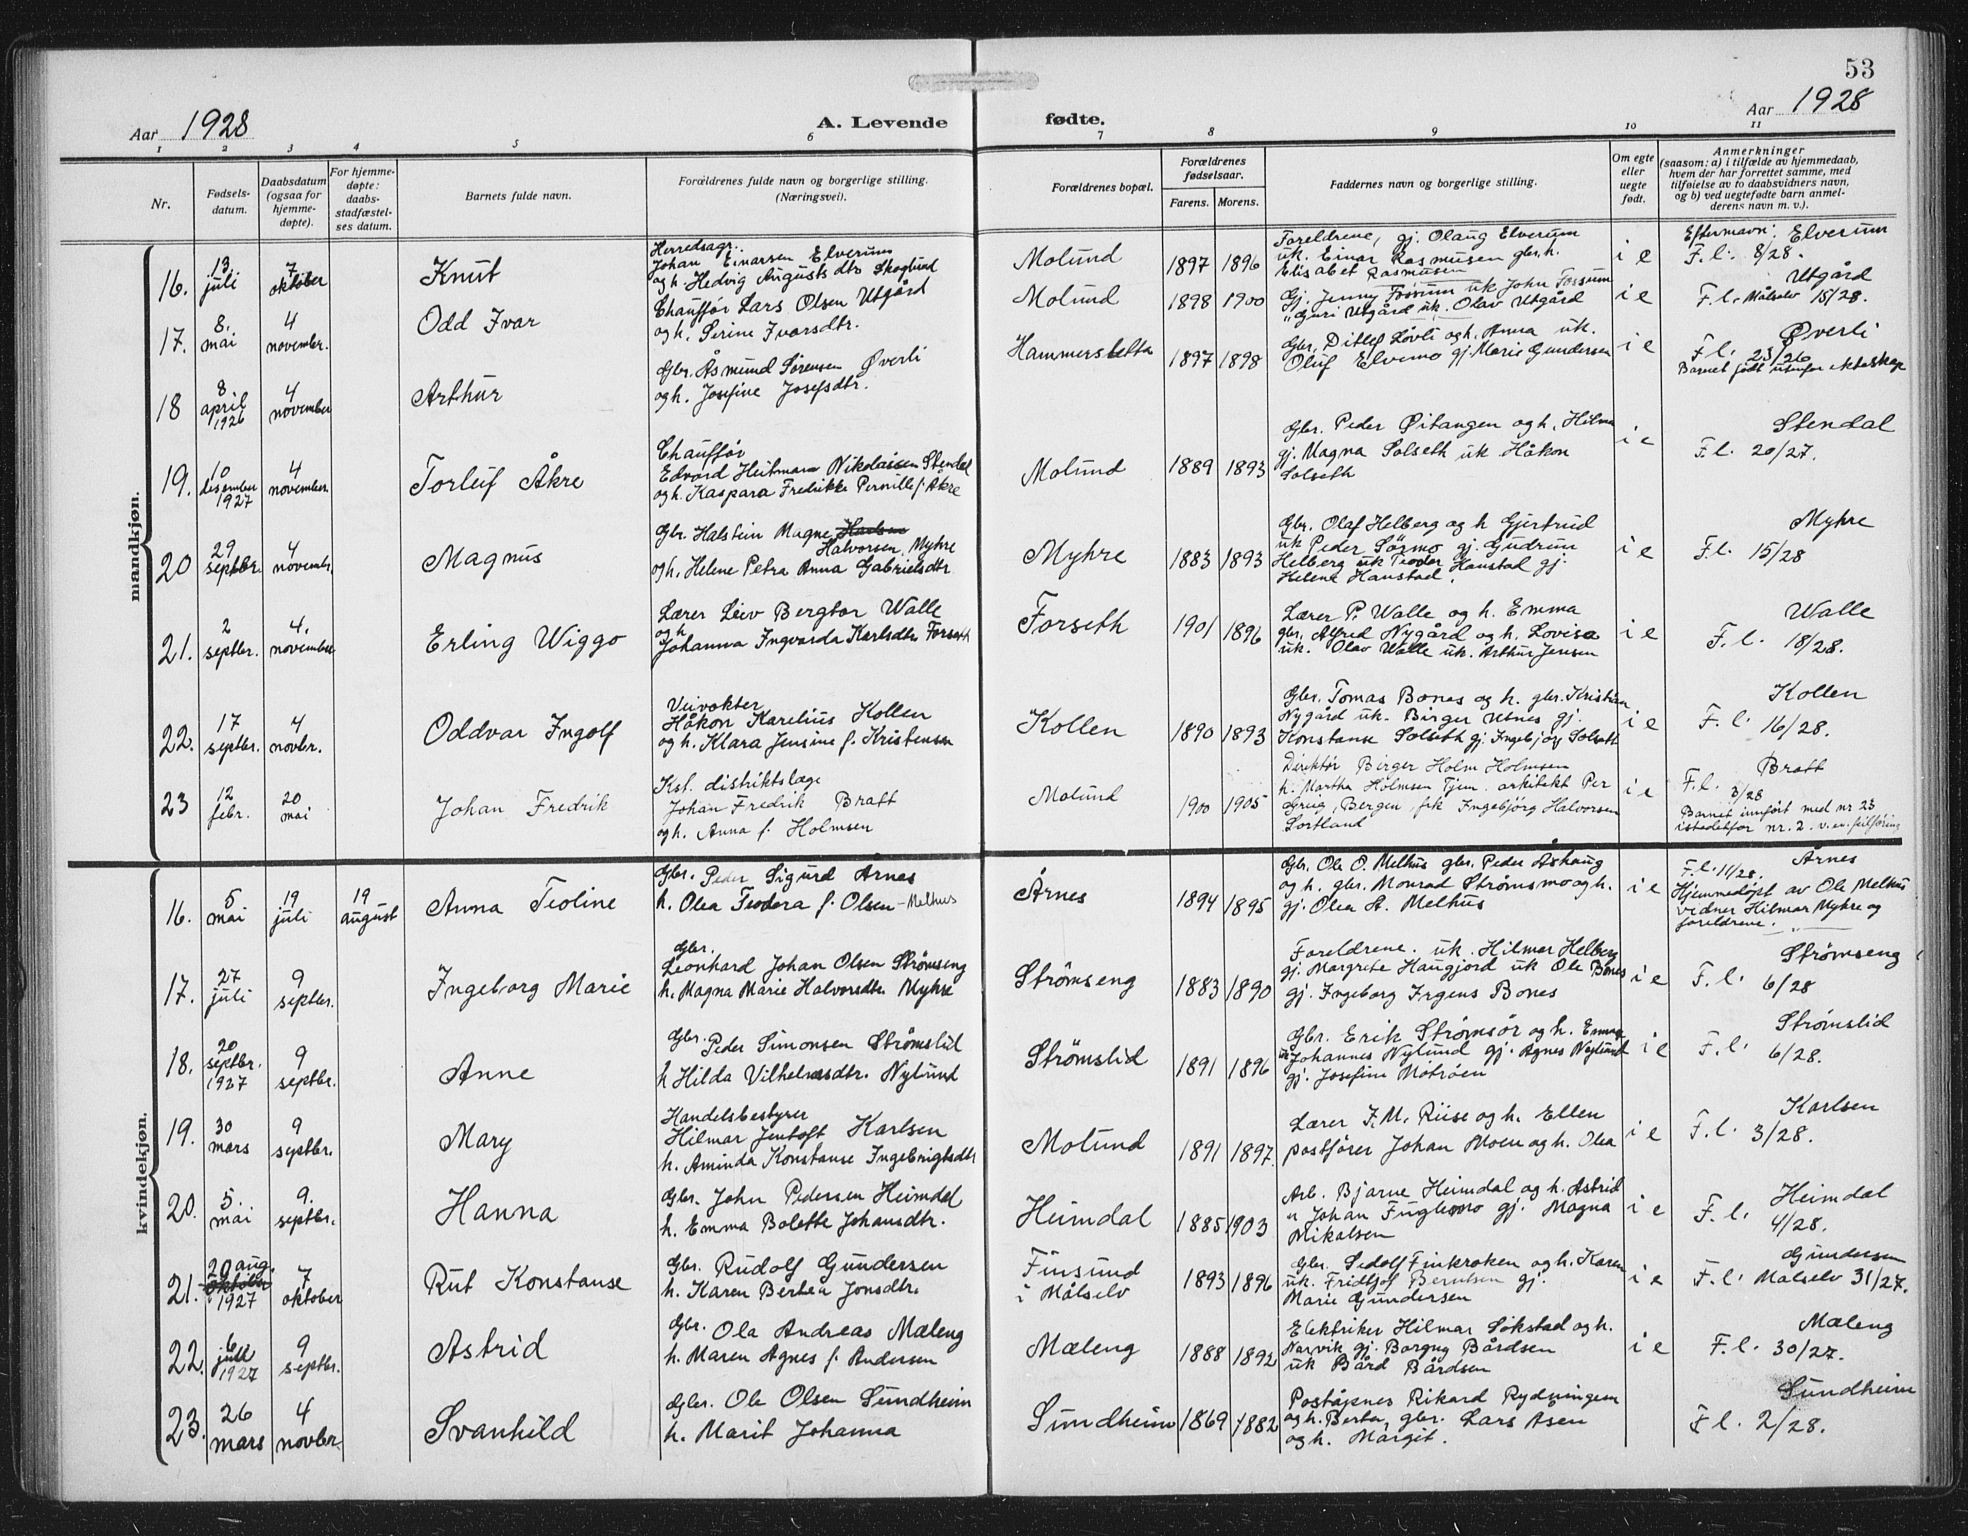 53
Aar 1928
A. Levende fødte.
Aar 1928
1 2 3 4 5 6 7 8 9 10 11
Nr.
Fødsels-
datum.
Daabsdatum
(ogsaa for
hjemme-
døpte).
For hjemme-
døpte:
daabs-
stadfæstel-
ses datum.
Barnets fulde navn.
Forældrenes fulde navn og borgerlige stilling.
(Næringsvei).
Forældrenes bopæl.
Forældrenes
fødselsaar.
Farens. Morens.
Faddernes navn og borgerlige stilling.
Om egte
eller
uegte
født.
Anmerkninger
(saasom: a) i tilfælde av hjemmedaab,
hvem der har forrettet samme, med
tilføielse av to daabsvidners navn,
og b) ved uegtefødte barn anmel-
derens navn m. v.).
mandkjøn.
16.
13
juli
7
oktober
Knut
Herredsagr.
Johan Einarsen Elverum
og h. Hedvig Augustsdtr Skoglund
Molund
1897 1896
Foreldrene, gj. Olaug Elverum
uk. Einar Rasmusen gbr. h.
Elisabet Rasmusen
i e
Efternavn: Elverum
F. l. 8/28.
17.
8.
mai
4
november.
Odd Ivar
Chauffør Lars Olsen Utgård
og h. Serine Ivarsdtr.
Molund
1898 1900
Gj. Jenny Fossum uk John Fossum
" Guri Utgård uk. Olav Utgård
i e
Utgård
F. l. Målselv 15/28.
18
8
april
1926
4
november
Arthur
Gbr. Åsmund Sørensen Øverli
og h. Josefine Josefsdtr.
Hammersletta
1897 1898
Gbr. Ditlef Løvli og h. Anna uk.
Oluf Elvemo gj. Marie Gundersen
i e
Øverli
F. l. 23/26
Barnet født utenfor ekteskap
19.
10
desember
1927
4
november.
Torleif Åkre
Chauffør
Edvard Heitman Nikolaisen Stendal
og h. Kaspara Fredrikke Pernille f. Åkre
Molund
1889 1893
Gbr. Peder Øitangen og h. Hilma
gj. Magna Solseth uk Håkon
Solseth
i e
Stendal
F. l. 20/27.
20
29
septbr.
4
novembr.
Magnus
Gbr. Halstein Magne
Halvorsen Myhre
og h. Helene Petra Anna Gabrielsdtr
Myhre
1883 1893
Gbr. Olaf Helberg og h Gjertrud
uk Peder Sörmo gj. Gudrun
Helberg uk Teodor Hanstad gj
Helene Hanstad.
i e
Myhre
F. l. 15/28
21.
2
septbr.
4.
november
Erling Wiggo
Lærer Leiv Bergtor Walle
og h
Johanna Ingvarda Karlsdtr Forseth
Forseth
1901 1896
Lærer P. Walle og h. Emma
gbr. Alfred Nygård og h. Lovisa
uk. Olav Walle uk. Arthur Jensen
i e
Walle
F. l. 18/28.
22.
17
septbr.
4
novbr.
Oddvar Ingolf
Veivokter
Håkon Karelius Kollen
og h. Klara Jensine f. Kristensen
Kollen
1890 1893
Gbr. Tomas Bones og h. gbr. Kristian
Nygård uk. Birger Utnes gj.
Konstanse Solseth gj. Ingebjørg Solseth
i e
Kollen
F. l. 16/28.
23
12
febr.
20
mai
Johan Fredrik
Kst. distriktslæge
Johan Fredrik Bratt
og h. Anna f. Holmsen
Molund
1900 1905
Direktør Birger Holm Holmsen
h. Martha Holmsen Tjen. arkitekt Per
Grieg, Bergen, frk Ingebjörg Halvorsen
Sortland
i e
Bratt
F. l. 3/28
Barnet innført med nr 23
istedetfor nr. 2. v. en feilføring
kvindekjøn.
16.
5
mai
19
juli
19
august
Anna Teoline
Gbr. Peder Sigurd Årnes
h. Olea Teodora f. Olsen - Melhus
Årnes
1894 1895
Gbr. Ole O. Melhus gbr. Peder Åshaug
og h. gbr. Monrad Strømsmo og h.
gj. Olea A. Melhus
i e
Årnes
F. l. 11/28.
Hjemmedøpt av Ole Melhus
vidner Hilmar Myhre og
foreldrene.
17.
27
juli
9
septbr.
Ingeborg Marie
Gbr.
Leonhard Johan Olsen Strømseng
h. Magna Marie Halvorsdtr. Myhre
Strømseng
1883 1890
Foreldrene. uk. Hilmar Helberg
gj. Margrete Haugjord uk Ole Bones
gj. Ingeborg Irgens Bones
i e
Strømseng
F. l. 6/28
18.
20
septbr.
1927
9
septbr.
Anne
Gbr. Peder Simonsen Strømslid
h Hilda Vilhelmsdtr. Nylund
Strømslid
1891 1896
Gbr. Erik Strømsør og h. Emma
uk Johannes Nylund gj. Agnes Nylund
gj. Josefine Motrøen
i e
Strømslid
F. l. 6/28.
19.
30
mars
9
septbr.
Mary
Handelsbestyrer
Hilmar Jentoft Karlsen
h. Aminda Konstanse Ingebrigtsdtr
Molund
1891 1897.
Lærer J. M. Riise og h. Ellen
postfører Johan Moen og h. Olea
i e
Karlsen
F. l. 3/28.
20.
5.
mai
9.
septbr.
Hanna
Gbr. John Pedersen Heimdal
h. Emma Bolette Johansdtr.
Heimdal
1885 1903
Arb. Bjarne Heimdal og h. Astrid
" Johan Fuglemo gj. Magna
Mikalsen
i e
Heimdal
F. l. 4/28.
21.
20 aug.
oktober
1927
7
oktober
Rut Konstanse
Gbr. Rudolf Gundersen
h. Karen Bertea Jonsdtr.
Finsund
i Målselv
1893 1896
Gbr. Sedolf Finkroken og h. Karen
uk. Fridtjof Berntsen gj.
Marie Gundersen
i e
Gundersen
F. l. Målselv 31/27.
22.
6
juli
1927
9
septbr.
Astrid
Gbr. Ola Andreas Mæleng
h. Maren Agnes f. Andersen
Mæleng
1888 1892
Elektriker Hilmar Sökstad og h.
Narvik gj. Borgny Bårdsen
uk Bård Bårdsen
i e
Mæleng
F. l. 30/27.
23.
26
mars
4
novbr.
Svanhild
Gbr. Ole Olsen Sundheim
h. Marit Johanna
Sundheim
1869 1882
Poståpner Rikard Rydningen
og h. Berta, gbr. Lars Åsen
og h. Margit.
i e
Sundheim
F. l. 2/28.